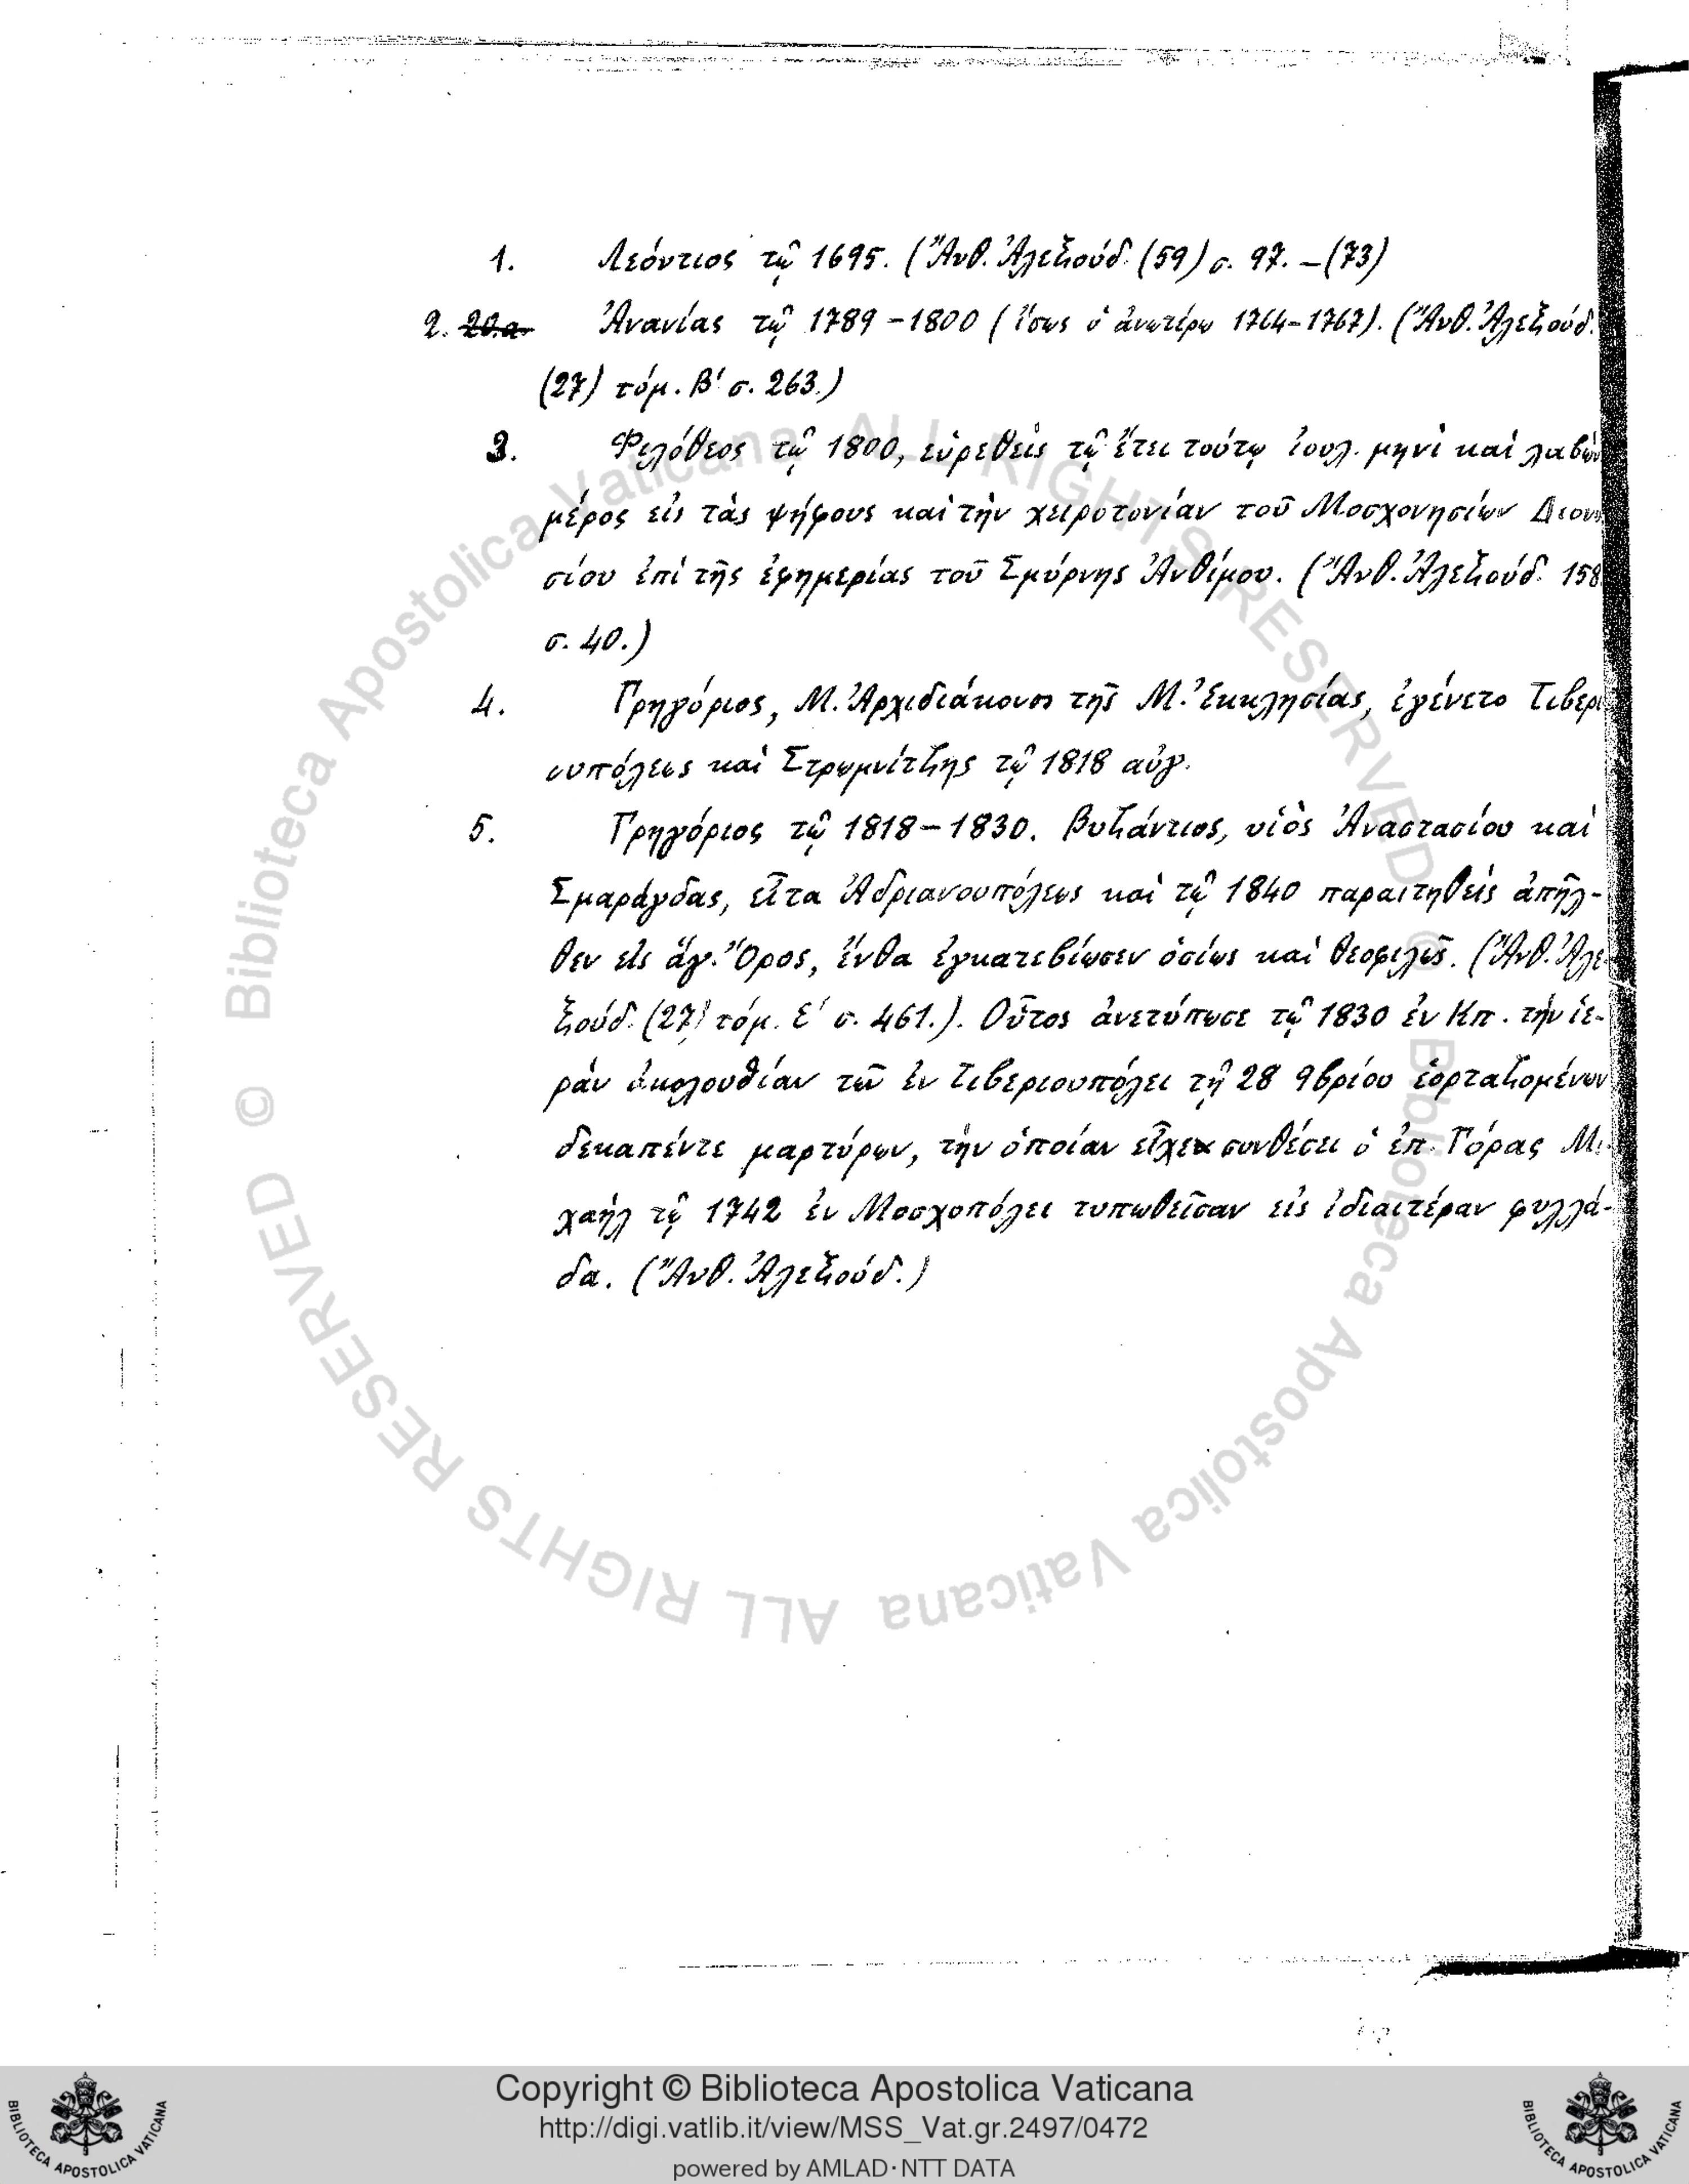 1. Λεόντιος τῷ 1695. (Ἄνθ. Ἀλεξούδ. (59) σ. 97. – (73)
2. 20.α. Ἀνανίας τῷ 1789 – 1800 (ἴσως ὁ ἀνωτέρω 1764–1767). (Ἄνθ. Ἀλεξούδ.
(27) τόμ. Β' σ. 263.)
3. Φιλόθεος τῷ 1800, εὑρεθεὶς τῷ ἔτει τούτῳ ἰουλ. μηνὶ καὶ λαβὼν
μέρος εἰς τὰς ψήφους καὶ τὴν χειροτονίαν τοῦ Μοσχονησίων Διονυ
σίου ἐπὶ τῆς ἐφημερίας τοῦ Σμύρνης Ἀνθίμου. (Ἄνθ. Ἀλεξούδ. 158
σ. 40.)
4. Γρηγόριος, Μ. Ἀρχιδιάκονος τῆς Μ. Ἐκκλησίας, ἐγένετο Τιβερι
ουπόλεως καὶ Στρωμνίτζης τῷ 1818 αὐγ.
5. Γρηγόριος τῷ 1818 – 1830. Βυζάντιος, υἱὸς Ἀναστασίου καὶ
Σμαράγδας, εἶτα Ἀδριανουπόλεως καὶ τῷ 1840 παραιτηθεὶς ἀπῆλ-
θεν εἰς ἅγ. Ὄρος, ἔνθα ἐγκατεβίωσεν ὁσίως καὶ θεοφιλῶς. (Ἄνθ. Ἀλε
ξούδ. (27) τόμ. Ε' σ. 461.). Οὗτος ἀνετύπωσε τῷ 1830 ἐν Κπ. τὴν ἱε-
ρὰν ἀκολουθίαν τῶν ἐν Τιβεριουπόλει τῇ 28 9βρίου ἑορταζομένων
δεκαπέντε μαρτύρων, τὴν ὁποίαν εἶχεν συνθέσει ὁ ἐπ. Γόρας Μι
χαὴλ τῷ 1742 ἐν Μοσχοπόλει τυπωθεῖσαν εἰς ἰδιαιτέραν φυλλά-
δα. (Ἄνθ. Ἀλεξούδ.)
© Biblioteca Apostolica Vaticana ALL RIGHTS RESERVED © Biblioteca Apostolica Vaticana ALL RIGHTS RESERVED
BIBLIOTECA APOSTOLICA VATICANA
Copyright © Biblioteca Apostolica Vaticana
http://digi.vatlib.it/view/MSS_Vat.gr.2497/0472
powered by AMLAD·NTT DATA
BIBLIOTECA APOSTOLICA VATICANA